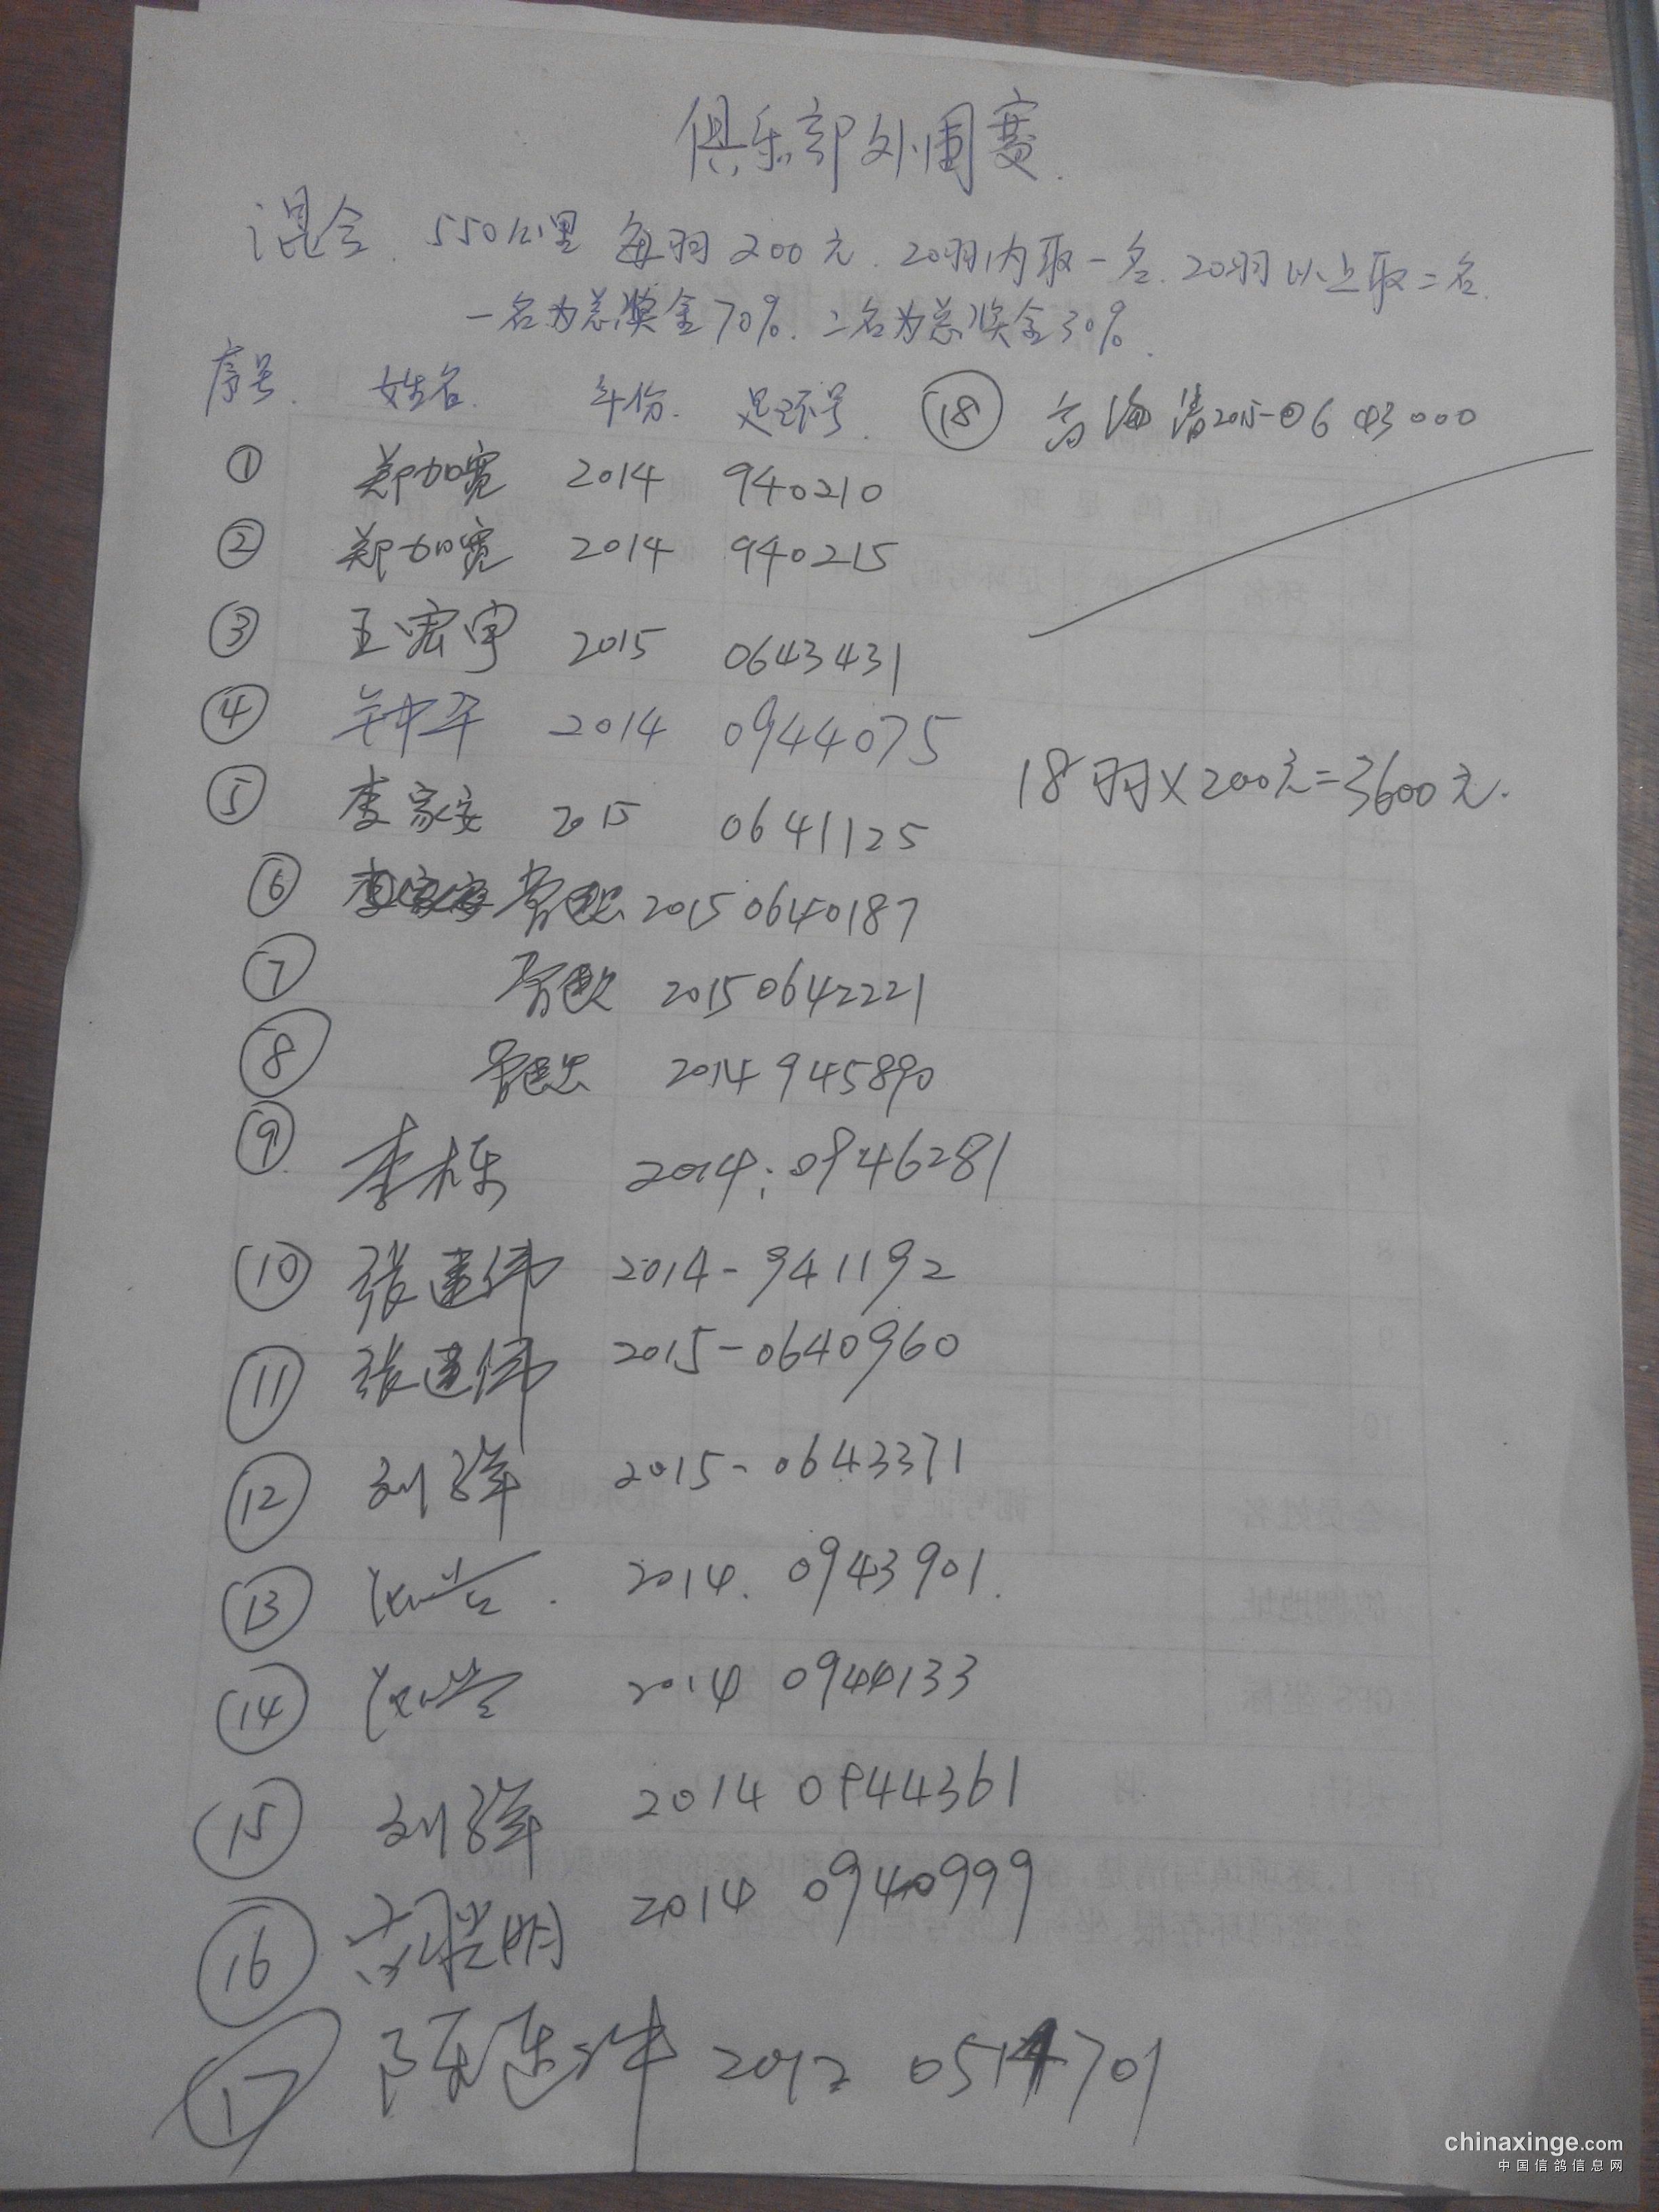 俱乐部外围赛.
混合. 550公里 每羽200元. 20羽内取一名. 20羽以上取二名.
一名为总奖金70%. 二名为总奖金30%.
序号. 姓名. 年份. 足环号.
① 郑加宽 2014 940210
② 郑加宽 2014 940215
③ 王宏宇 2015 0643431
④ 2014 0944075
⑤ 李家安 2015 0641125
⑥ 2015 0640187
⑦ 2015 0642221
⑧ 2014 945890
⑨ 李栋 2014: 0946281
⑩ 张建伟 2014-941192
⑪ 张建伟 2015-0640960
⑫ 刘祥 2015-0643371
⑬ 2014. 0943901.
⑭ 2014 0944133
⑮ 刘祥 2014 0944361
⑯ 2014 0940999
⑰ 2012 701
⑱ 高海清 2015-0643000
18羽×200元=3600元.
chinaxinge.com
中国信鸽信息网